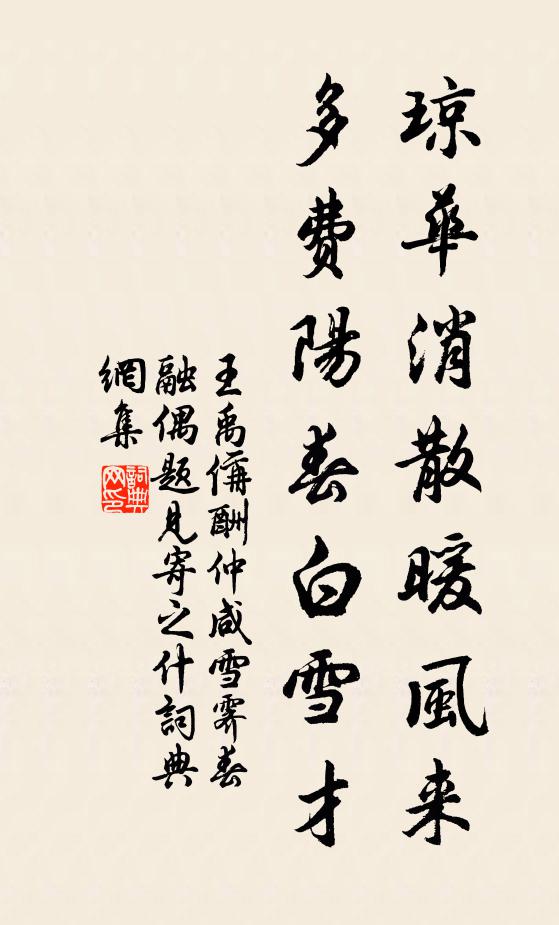 琼華消散暖風来
多費陽春白雪才
王禹偁酬仲咸雪霽春
融偶题見寄之什詞典
網集
詞典
网印